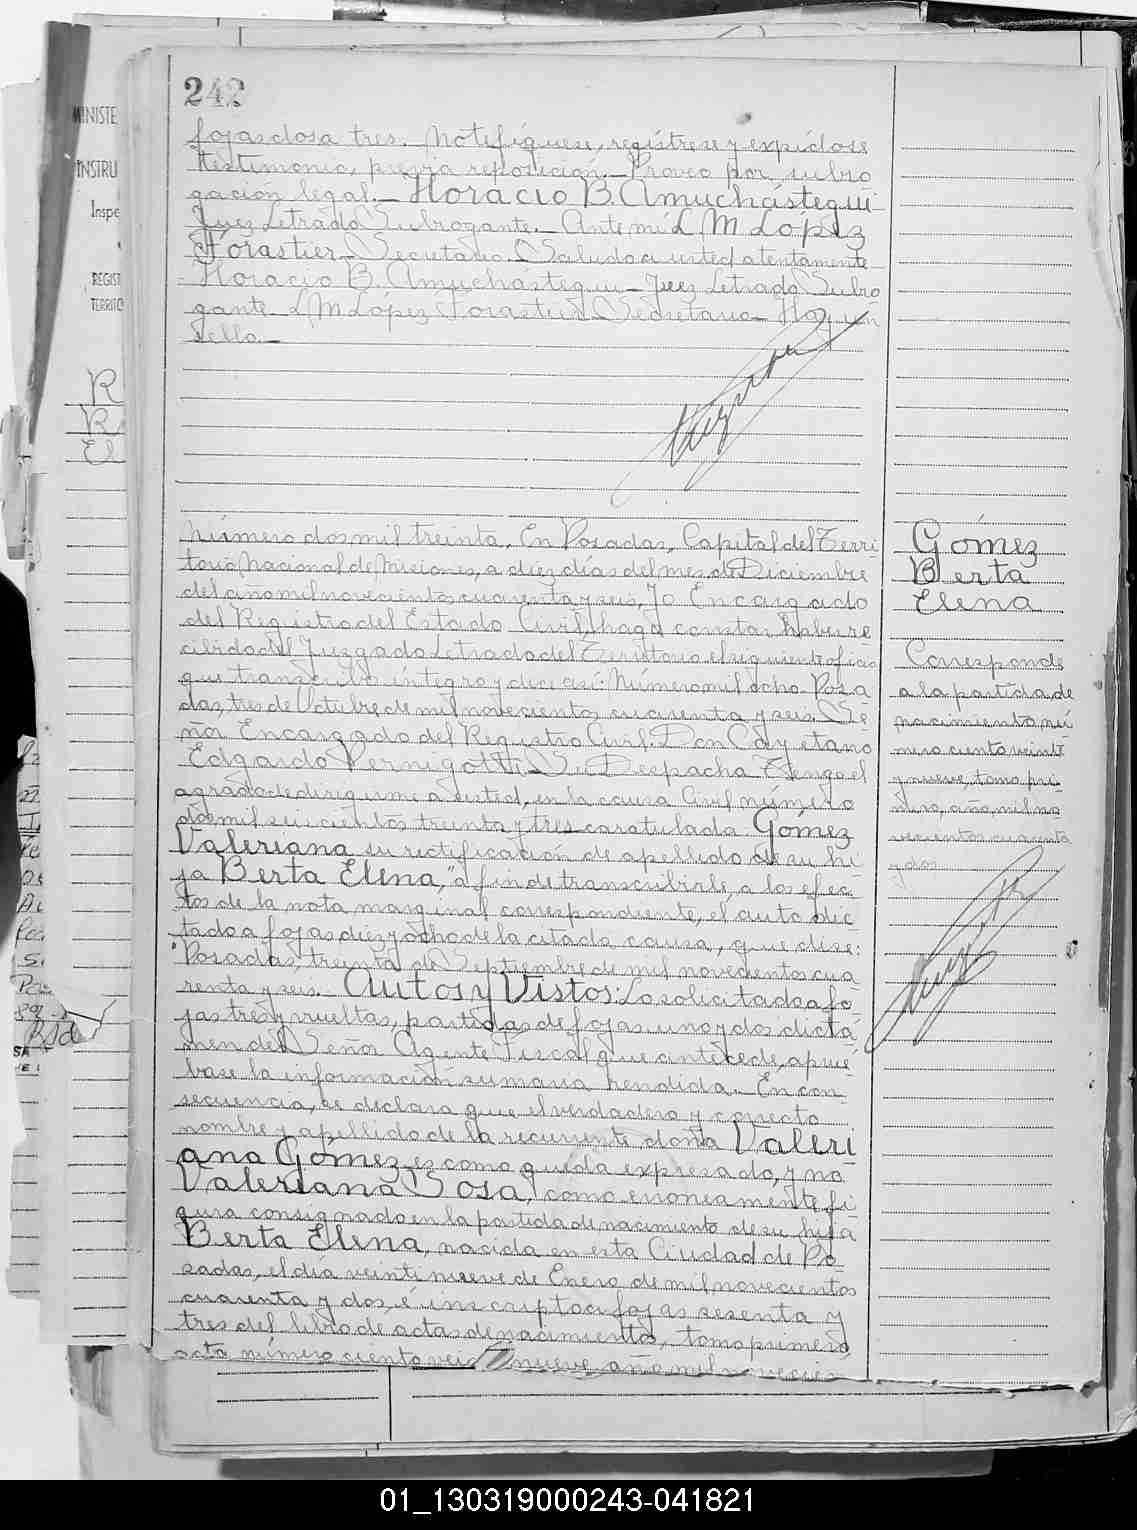 242
MINISTE
INSTRU
Inspe
REGIST
TERRITO
R
R
El
fojas dos a tres. Notifíquese, regístrese y expídase
testimonio, previa reposición.- Proveo por subro
gación legal.- Horacio B. Amuchástegui
Juez Letrado Subrogante.- Ante mí: L M López
Forastier- Secretario. Saludo a usted atentamente
Horacio B. Amuchástegui- Juez Letrado Subro
gante- L M López Forastier- Secretario- Hay un
sello.-
Número dos mil treinta. En Posadas, Capital del Terri
torio Nacional de Misiones, a diez días del mes de Diciembre
del año mil novecientos cuarenta y seis, Yo Encargado
del Registro del Estado Civil, hago constar haber re
cibido del Juzgado Letrado del Territorio el siguiente oficio
que transcribo íntegro y dice así: Número mil ocho. Posa
das, tres de Octubre de mil novecientos cuarenta y seis. Se
ñor Encargado del Registro Civil. Don Cayetano
Edgardo Vernigotti Su Despacho Tengo el
agrado de dirigirme a usted, en la causa Civil número
dos mil seiscientos treinta y tres caratulada Gómez
Valeriana su rectificación de apellido de su hi
ja Berta Elena," a fin de transcribirle, a los efec
tos de la nota marginal correspondiente, el auto dic
tado a fojas diez y ocho de la citada causa, que dice:
"Posadas, treinta de Septiembre de mil novecientos cua
renta y seis. Autos y Vistos: Lo solicitado a fo
jas tres y vueltas, partidas de fojas uno y dos, dicta
men del Señor Agente Fiscal que antecede, aprué
base la información sumaria rendida. En con
secuencia, se declara que el verdadero y correcto
nombre y apellido de la recurrente doña Valeri
ana Gómez es como queda expresado, y no
Valeriana Sosa, como erróneamente fi
gura consignado en la partida de nacimiento de su hija
Berta Elena, nacida en esta Ciudad de Po
sadas, el día veintinueve de Enero de mil novecientos
cuarenta y dos, é inscripto a fojas sesenta y
tres del libro de actas de nacimientos, tomo primero
acta número ciento vei nueve año mil novecien
Gómez
Berta
Elena
Corresponde
a la partida de
nacimiento nú
mero ciento veinti
y nueve, tomo pri
mero, año mil no
vecientos cuarenta
y dos
01_130319000243-041821